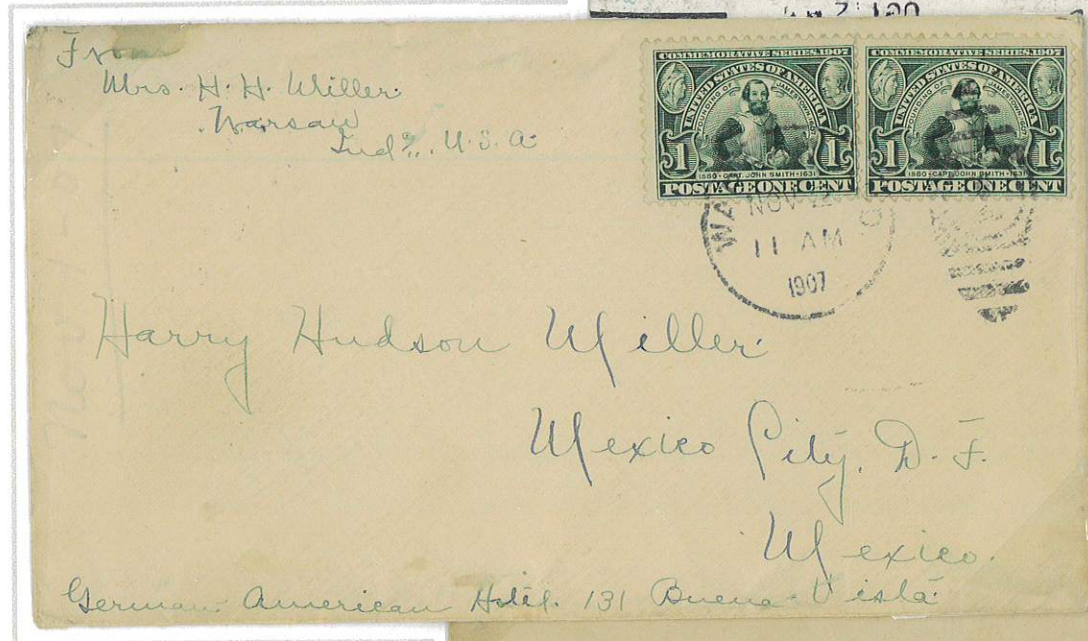 From
Mrs. H. H. Miller.
Warsaw
Ind., U.S.A.
COMMEMORATIVE SERIES.1907
UNITED STATES OF AMERICA
FOUNDING OF JAMESTOWN 1607
1 1
1580·CAPT. JOHN SMITH·1631
POSTAGE ONE CENT
COMMEMORATIVE SERIES.1907
UNITED STATES OF AMERICA
FOUNDING OF JAMESTOWN 1607
1 1
1580·CAPT. JOHN SMITH·1631
POSTAGE ONE CENT
NOV
11 AM
1907
Harry Hudson Miller.
Mexico City, D. F.
Mexico.
German American Hotel. 131 Buena Vista